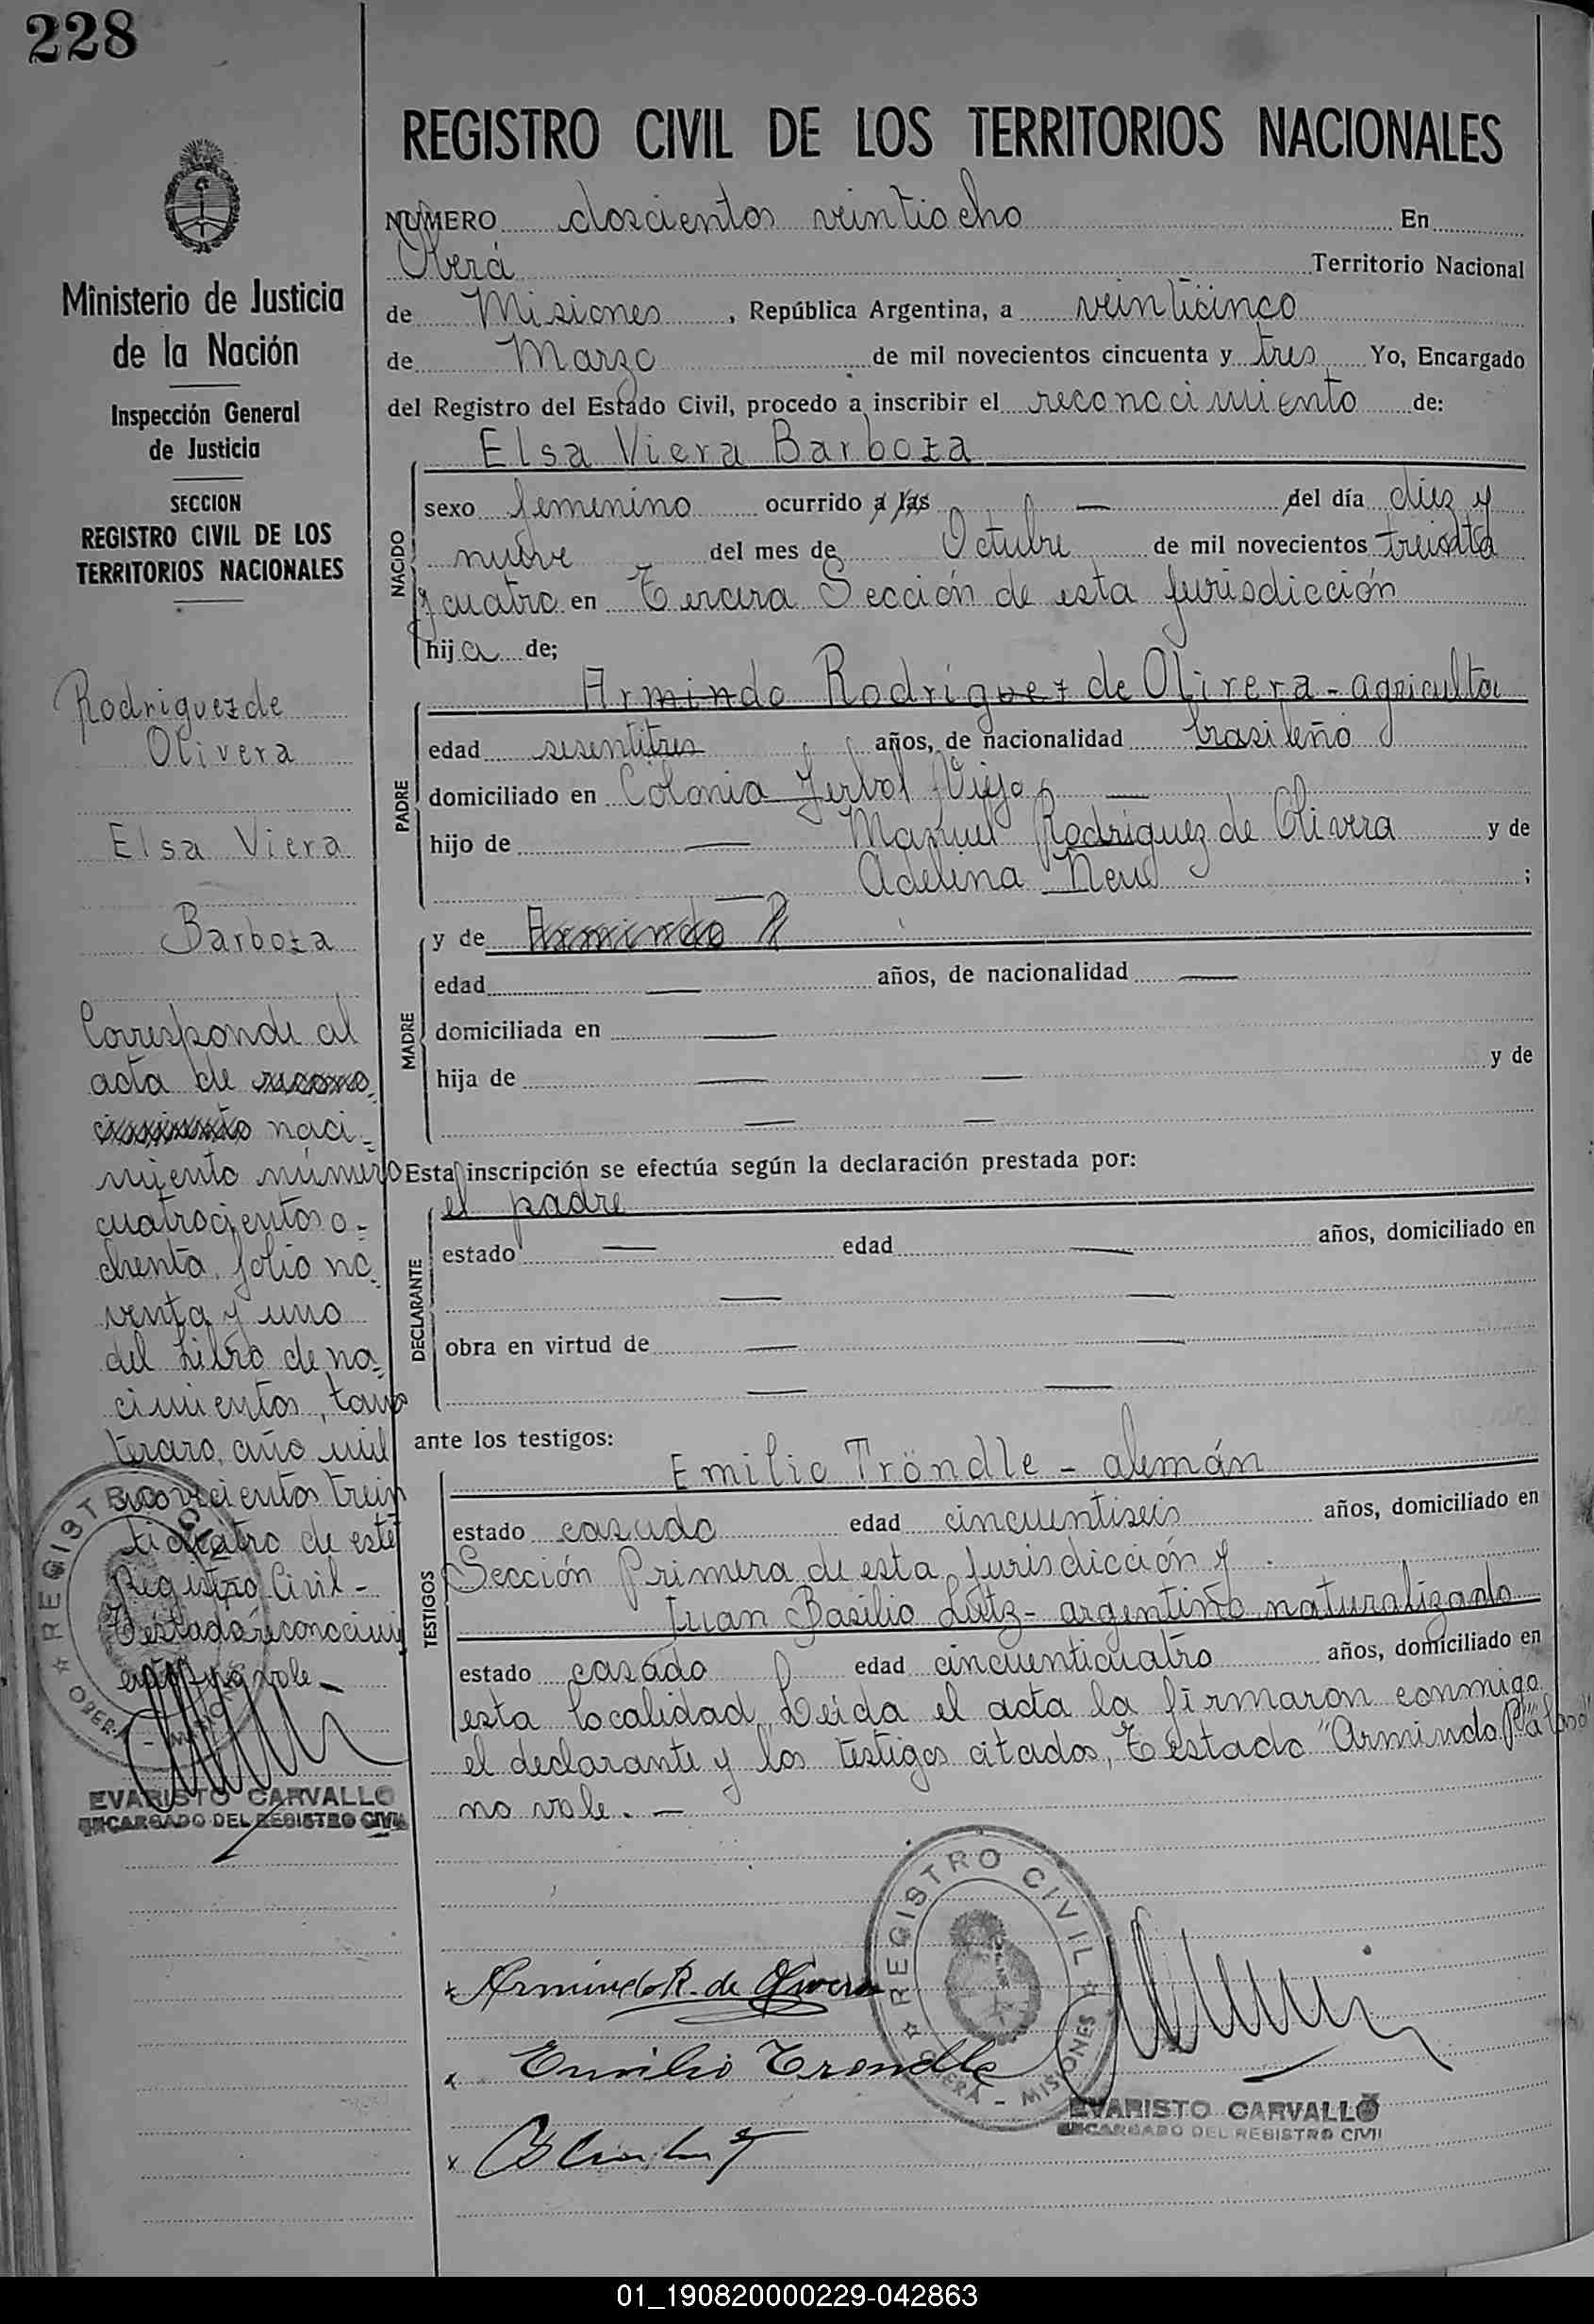 228
REGISTRO CIVIL DE LOS TERRITORIOS NACIONALES
NUMERO doscientos veintiocho En
Oberá Territorio Nacional
de Misiones, República Argentina, a veinticinco
de Marzo de mil novecientos cincuenta y tres Yo, Encargado
del Registro del Estado Civil, procedo a inscribir el reconocimiento de:
Elsa Viera Barboza
NACIDO
sexo femenino ocurrido a las — del día diez y
nueve del mes de Octubre de mil novecientos treinta
y cuatro en Tercera Sección de esta jurisdicción
hija de;
PADRE
Armindo Rodriguez de Olivera - agricultor
edad sesentitres años, de nacionalidad brasileño
domiciliado en Colonia Yerbal Viejo —
hijo de — Manuel Rodriguez de Olivera y de
— Adelina ;
MADRE
y de Armindo R
edad — años, de nacionalidad —
domiciliada en —
hija de — — y de
— —
Esta inscripción se efectúa según la declaración prestada por:
DECLARANTE
el padre
estado — edad — años, domiciliado en
— —
obra en virtud de — —
— —
ante los testigos:
TESTIGOS
Emilio Tröndle - alemán
estado casado edad cincuentiseis años, domiciliado en
Sección Primera de esta jurisdicción y
Juan Basilio Lutz - argentino naturalizado
estado casado edad cincuenticuatro años, domiciliado en
esta localidad. Leída el acta la firmaron conmigo
el declarante y los testigos citados, Testado "Armindo R"
no vale. —
Armindo R. de Olivera
Emilio Trondle
REGISTRO CIVIL
OBERA - MISIONES
EVARISTO CARVALLO
ENCARGADO DEL REGISTRO CIVIL
Ministerio de Justicia
de la Nación
Inspección General
de Justicia
SECCION
REGISTRO CIVIL DE LOS
TERRITORIOS NACIONALES
Rodriguez de
Olivera
Elsa Viera
Barboza
Corresponde al
acta de recono
cimiento naci=
miento número
cuatrocientos o=
chenta, folio no=
venta y uno
del Libro de na=
cimientos, tomo
tercero, año mil
novecientos trein
ticuatro de este
Registro Civil -
Testado: reconocimi
ento, no vale -
REGISTRO CIVIL
OBERA - MISIONES
EVARISTO CARVALLO
ENCARGADO DEL REGISTRO CIVIL
01_190820000229-042863